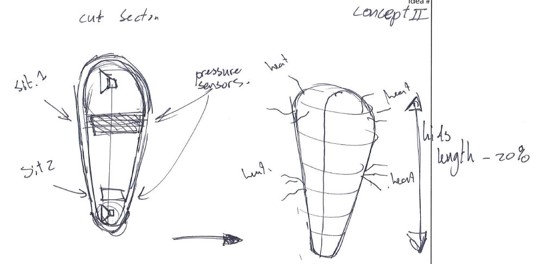 cut Secton
Idea #
Concept II
sit.1
pressure
sensors.
heat
heat
sit 2
heat.
heat
kids
length -20%